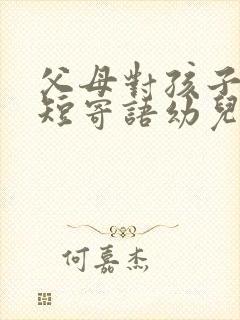 父母對孩子
短寄語幼兒
何嘉杰